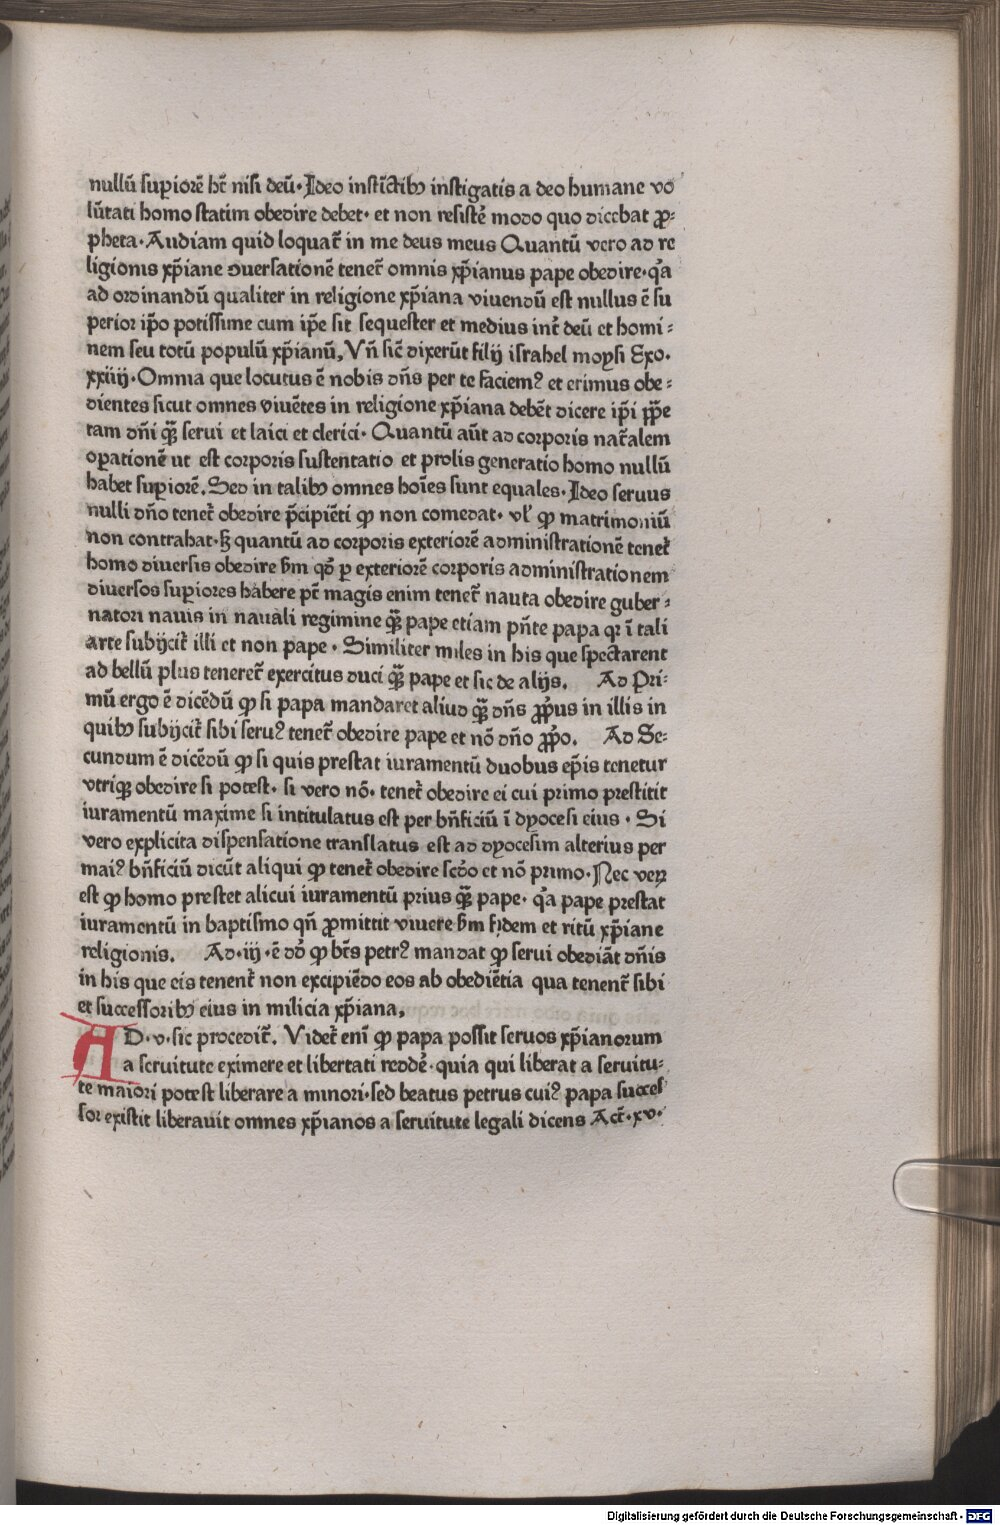 nullū suꝑiorē hꝫ nisi deū· Ideo instīctibꝰ instigatis a deo humane vo
lūtati homo statim obedire debet· et non resisté modo quo dicebat ꝓ⸗
pheta· Audiam quid loquat̃ in me deus meus Quantū vero ad re
ligionis xp̄iane ꝯuersationē tenet̃ omnis xp̄ianus pape obedire· q̓a
ad ordinandū qualiter in religione xp̄iana viuendū est nullus ē su
perior ip̄o potissime cum ip̄e sit sequester et medius int̃ deū et homi⸗
nem seu totū populū xp̄ianū, Vñ sic̄ dixerūt filij israhel moysi Exo·
xxiiij· Omnia que locutus ē nobis dñs per te faciemꝰ et erimus obe⸗
dientes sicut omnes viuētes in religione xp̄iana debēt dicere ip̄i ꝓp̄e
tam dñi qꝫ̄ serui et laici et clerici· Quantū aūt ad corporis nat̃alem
oꝑationē ut est corporis sustentatio et prolis generatio homo nullū
habet suꝑiorē. Sed in talibꝰ omnes hoīes sunt equales· Ideo seruus
nulli dño tenet̃ obedire p̄cipiēti ꝙ non comedat· vl̓ ꝙ matrimoniū
non contrahat· ꝫ quantū ad corporis exteriorē administrationē tenet̃
homo diuersis obedire ẜm qđ ꝑ exteriorē corporis administrationem
diuersos suꝑiores habere pt̄ magis enim tenet̃ nauta obedire guber⸗
natori nauis in nauali regimine qꝫ̄ pape etiam pn̄te papa qꝛ ī tali
arte subijcit̃ illi et non pape· Similiter miles in his que spectarent
ad bellū plus teneret̃ exercitus duci qꝫ̄ pape et sic de alijs. Ad Pri⸗
mū ergo ē dicēdū ꝙ si papa mandaret aliud qꝫ̄ dñs ꝓp̓us in illis in
quibꝰ subijcit̃ sibi seruꝰ tenet̃ obedire pape et nō dño ꝓp̓o. Ad Se⸗
cundum ē dicēdū ꝙ si quis prestat iuramentū duobus ep̄is tenetur
vtriqꝫ obedire si potest· si vero nō· tenet̃ obedire ei cui primo prestitit
iuramentū maxime si intitulatus est per bn̄ficiū ī dyocesi eius· Si
vero explicita dispensatione translatus est ad dyocesim alterius per
maiꝰ bn̄ficiū dicūt aliqui ꝙ tenet̃ obedire scd̄o et nō primo· Nec veꝝ
est ꝙ homo prestet alicui iuramentū prius qꝫ̄ pape· q̓a pape prestat
iuramentū in baptismo qn̄ ꝓmittit viuere ẜm fidem et ritū xp̄iane
religionis. Ad· iij· ē dd̄ ꝙ bt̄s petrꝰ mandat ꝙ serui obediāt dñis
in his que eis tenent̃ non excipiēdo eos ab obediētia qua tenent̃ sibi
et successoribꝰ eius in milicia xp̄iana,
AD· v· sic procedit̃. Videt̃ enī ꝙ papa possit seruos xp̄ianorum
a seruitute eximere et libertati reddé· quia qui liberat a seruitu⸗
te maiori potest liberare a minori· sed beatus petrus cuiꝰ papa succes
sor existit liberauit omnes xp̄ianos a seruitute legali dicens Act̃· xv·
Digitalisierung gefördert durch die Deutsche Forschungsgemeinschaft - DFG